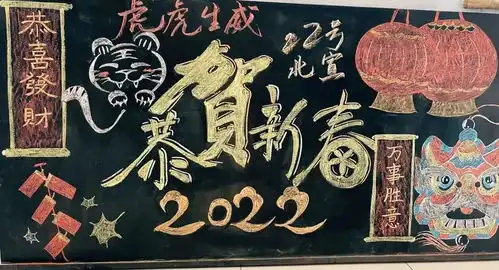 恭喜發財
虎虎生威
22号
北宣
恭賀新春
2022
万事胜意